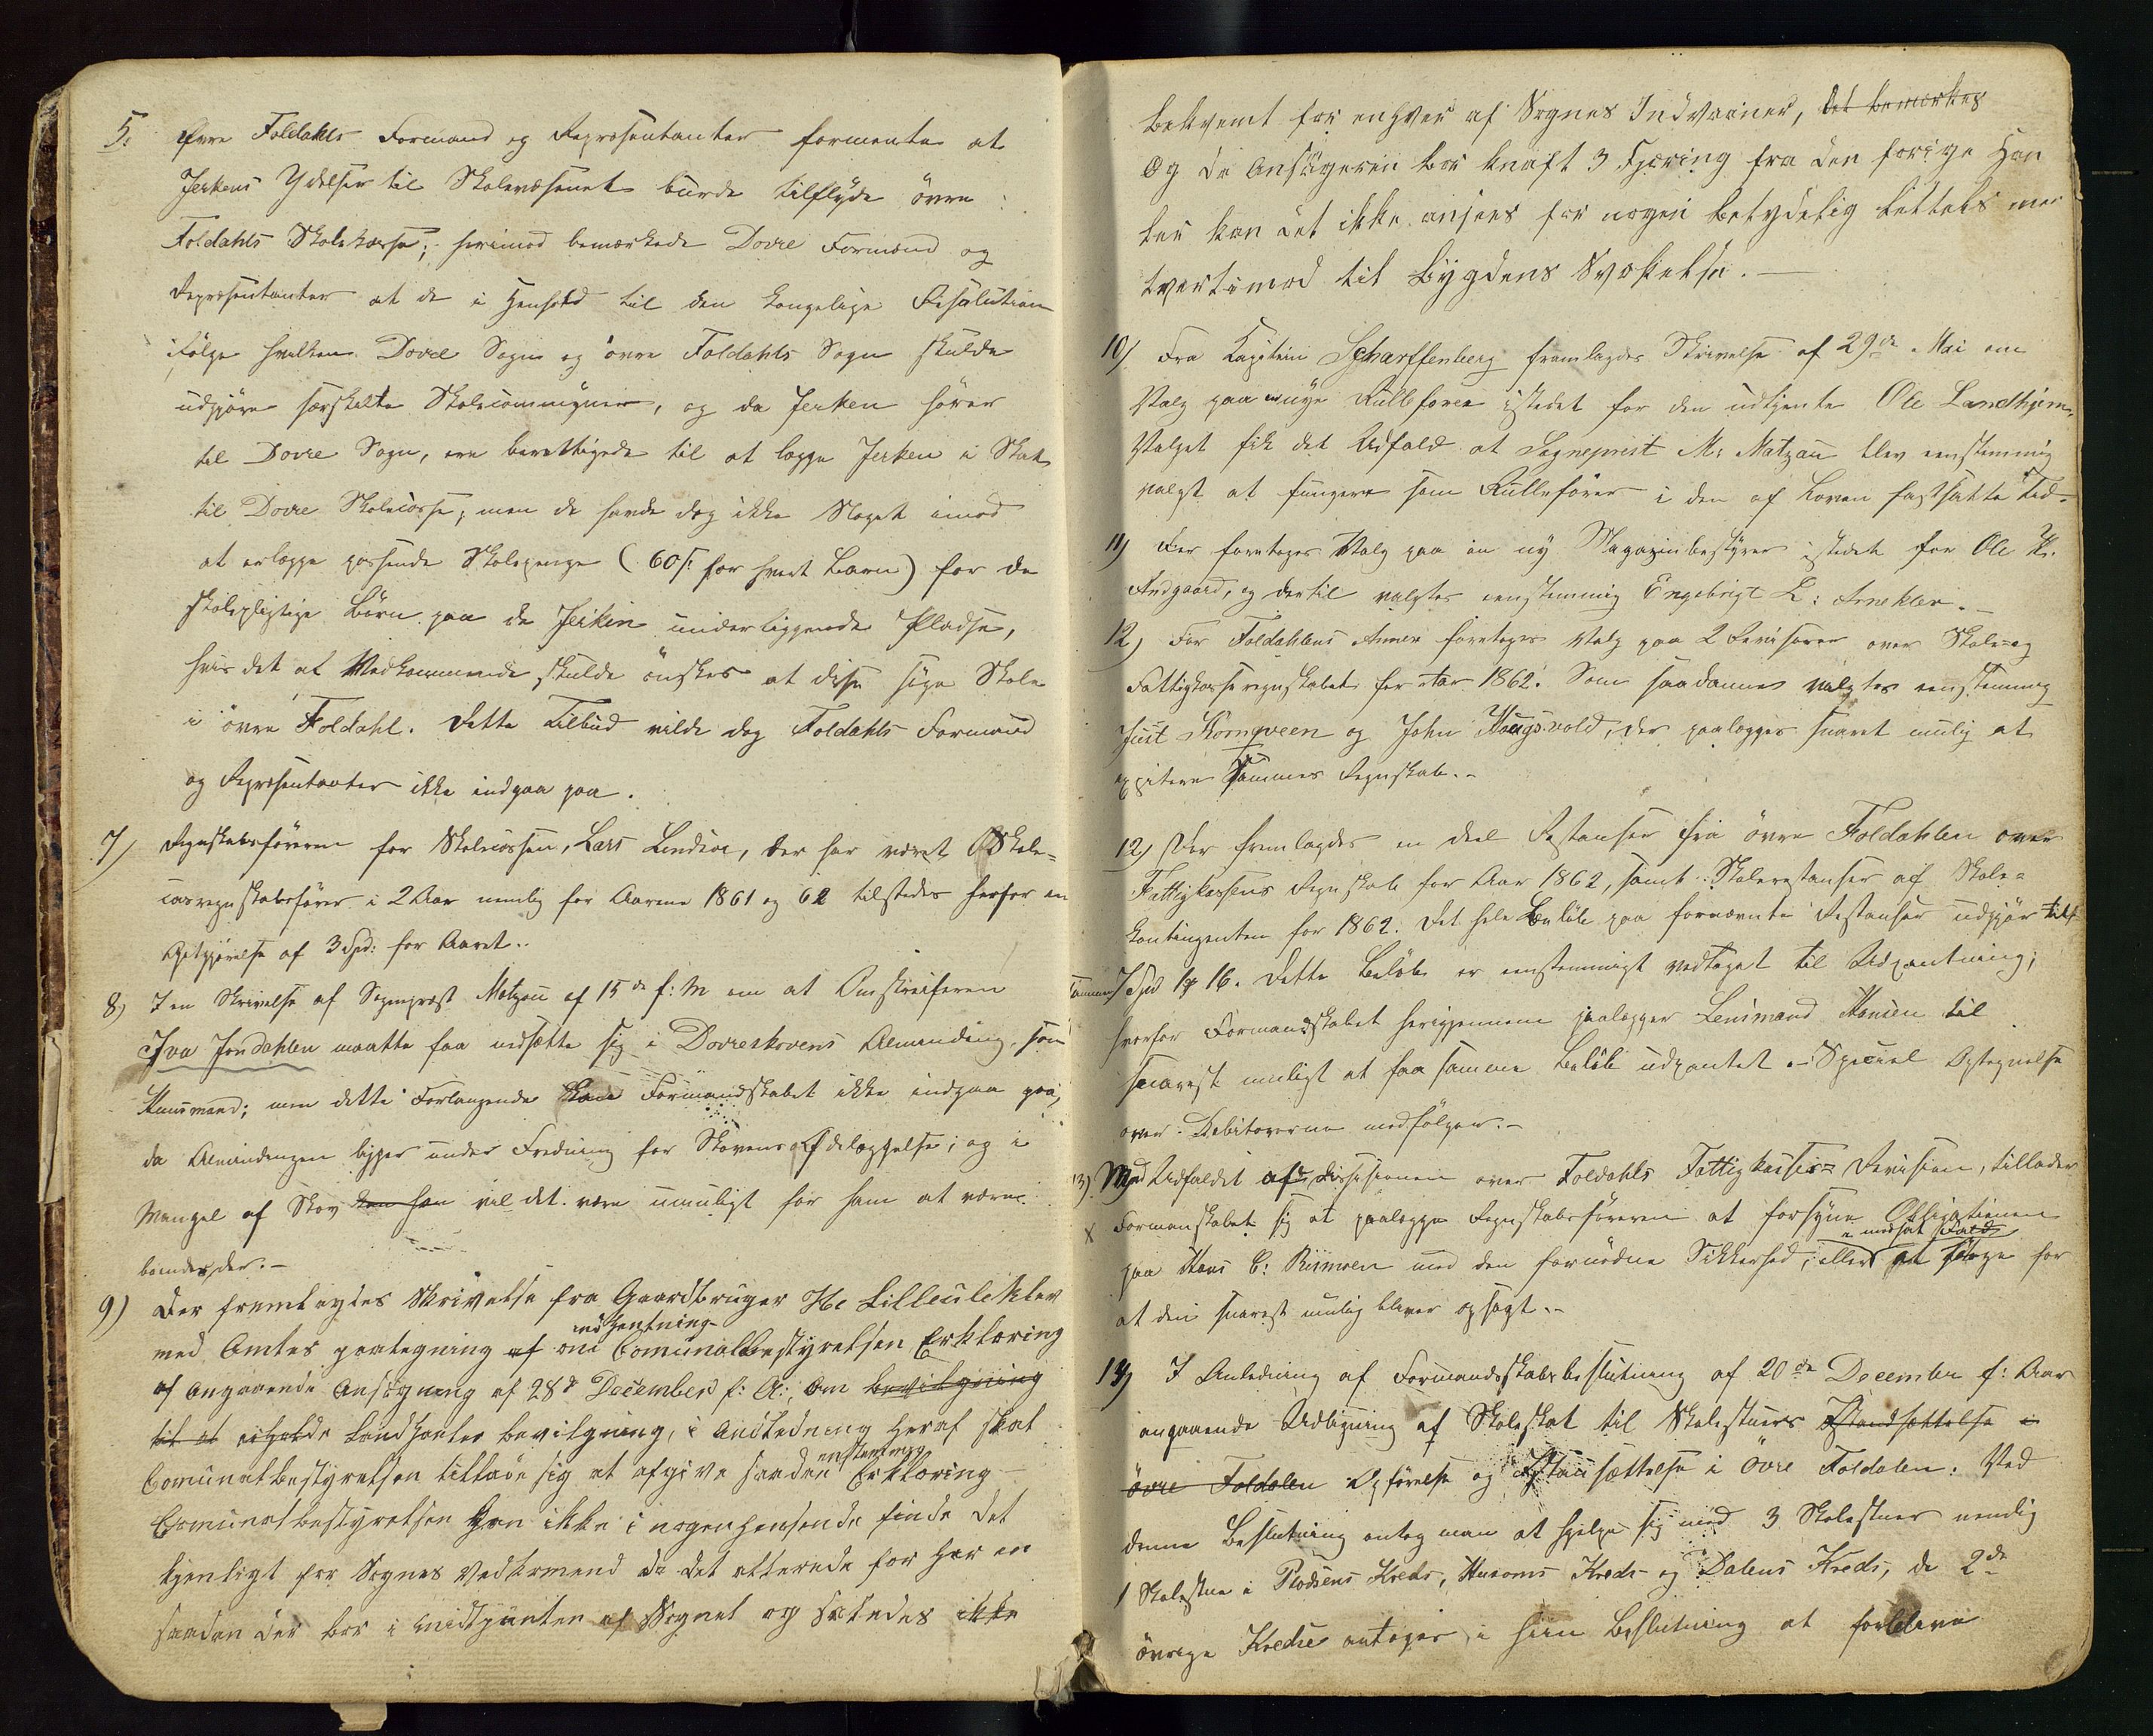 5. Øvre Foldahls Formænd og Repræsentanter formente at
Jerkens Ydelser til Skolevæsenet burde tilflyde övre
Foldahls Skolekasse; herimod bemærkede Dovre Formænd og
Repræsentanter at de i Henhold til den kongelige Resolution
ifölge hvilken Dovre Sogn og övre Foldahls Sogn skulde
udgjöre særskilte Skolecommuner, og da Jerken hörer
til Dovre Sogn, ere berettigede til at lægge Jerken i Skat
til Dovre Skolecasse; men de havde dog ikke Noget imod
at erlægge passende Skolepenge (60 s for hvert Barn) for de
skolepligtige Börn paa de Jerkin underliggende Pladse,
hvis det af Vedkommende skulde önskes at disse söge Skole
i övre Foldahl. Dette Tilbud vilde dog Foldahls Formænd
og Repræsentanter ikke indgaa paa.
7) Regnskabsföreren for Skolecassen, Lars Lindsøe, der har været Skole-
casregnskabsförer i 2 Aar nemlig for Aarene 1861 og 62 tilstedes herfor en
Godtgjörelse af 3 Spd: for Aaret.
8) I en Skrivelse af Sognepræst Matzau af 15de f: M om at Omstreiferen
Iva Jondahlen maatte faa nedsætte sig i Dovreskovens Alminding som
Huusmand; men dette Forlangende kan Formandskabet ikke indgaa paa,
da Almindingen ligger under Fredning for Skovens Ödelæggelse; og i
Mangel af Skov kan han vil det være umuligt for ham at være
boende der.-
9) Der fremlagdes Skrivelse fra Gaardbruger Lilleeuleklev
indhentning
med Amtes paategning af om Comunalbestyrelsen Erklæring
af angaaende Ansögning af 28de December f: A: om bevilgning
til at erholde Landhandler bevilgning, i Anledning heraf skal
enstemmig
Comunalbestyrelsen tillade sig at afgive saadan Erklæring
Comunalbestyrelsen kan ikke i nogen henseende finde det
tjenligt for Sognes Vedkomend da det allerede før har en
saadan der bor i midtpunten af Sognet og saaledes ikke
bekvemt for enhver af Sognes Indvaaner, det bemærkes
Og da Ansögeren bor knaft 3 Fjæring fra den forige Han
ler kan det ikke ansees for nogen betydelig lettels men
tvertimod til Bygdens Svækelse.-
10) Fra Kapitain Scharffenberg fremlagdes Skrivelse af 29de Mai om
Valg paa en nye Rulleförer istedet for den udtjente Ole Landhjem.
Valget fik det Udfald at Sognepræst M: Matzau blev eenstemmig
valgt at fungere som Rulleförer i den af Loven fastsatte Tid.-
11) Der foretoges Valg paa en ny Magazinbestyrer istedet for Ole
Andgaard, og dertil valgtes eenstemmig Engebrigt L: Arneklev.-
12) For Foldahlens Annex foretoges Valg paa 2 Revisorer over Skole- og
Fattigkasseregnskabet for Aar 1862. Som saadanne valgtes eenstemmig
Just Kornqveen og John Haugsvold, der paalægges snarest mulig at
sammes Regnskab.-
12) Der fremlagdes en deel Restanser fra övre Foldahlen over
Fattigkassens Regnskab for Aar 1862, samt Skolerestanser af Skole-
kontingenten for 1862. Det hele Belöb paa fornævnte Restanser udgjör till
sammen 7 Spd 1 # 16. Dette Belöb er eenstemmigt vedtaget til Udpantning;
hvorfor Formandskabet herigjennem paalægger Lensmand Hansen til
snarest muligt at faa samme Belöb udpantet.- Special Optegnelse
over Debitorerne medfölger.-
13) Med Udfaldet af Decisionen over Foldahls Fattigkasses- Revision, tillader
x Formanskabet sig at paalægge Regnskabsföreren at forsyne Obligationen
paa Hans C: Riimoen med den fornödne Sikkerhed; eller at sörge for
at den snarest mulig bliver opsagt.-
14) I Anledning af Formandskabsbeslutning af 20de December f: Aar
angaaende Udligning af Skoleskat til Skolestuers Istandsættelse i
övre Foldalen Opförelse og Istandsættelse i Övre Foldalen. Ved
denne Beslutning antog man at hjelpe sig med 3 Skolestuer nemlig
1 Skolestue i Plodsens Kreds, Husoms Kreds og Dalens Kreds, de 2de
övrige Kredse antoges i hiin Beslutning at forblive